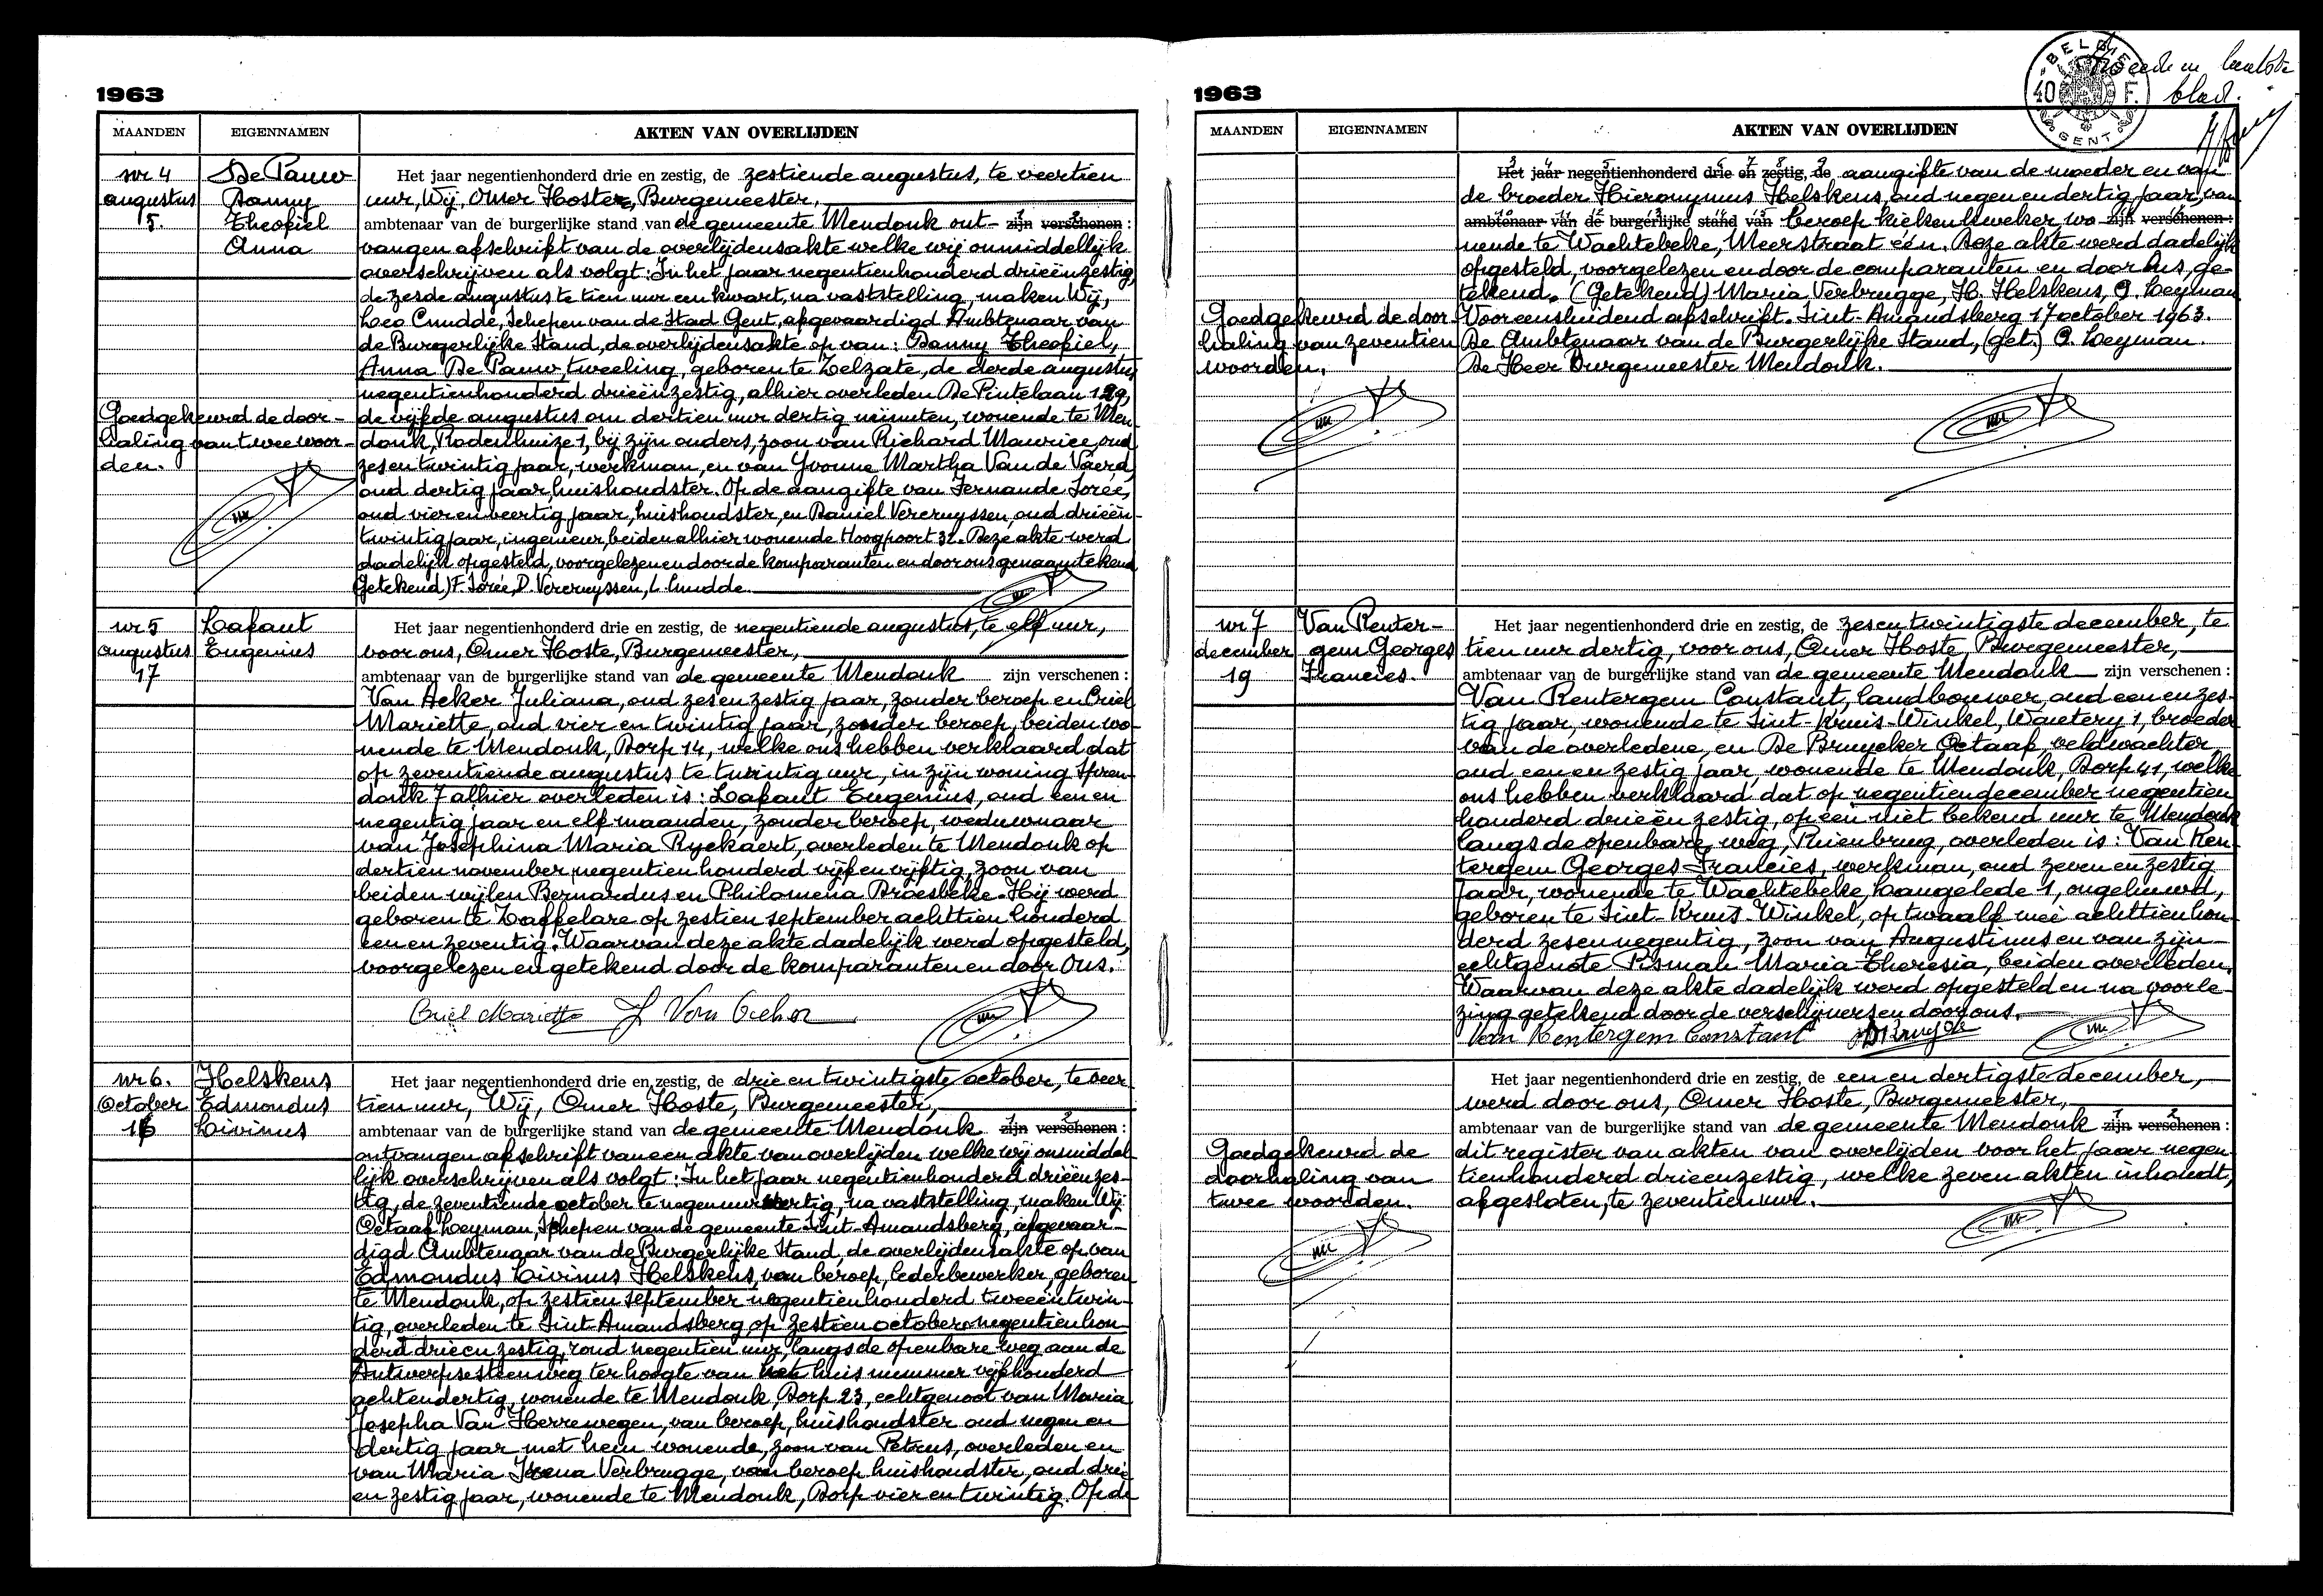 1963
MAANDEN EIGENNAMEN AKTEN VAN OVERLIJDEN
nr 4 De Pauw
augustus Danny
5. Theofiel
Anna
Het jaar negentienhonderd drie en zestig, de zestiende augustus, te veertien
uur, Wij, Omer Hoste, Burgemeester,
ambtenaar van de burgerlijke stand van de gemeente Mendonk ont- zijn verschenen :
vangen afschrift van de overlijdensakte welke wij onmiddellijk
overschrijven als volgt: In het jaar negentienhonderd drieënzestig,
de zesde augustus te tien uur een kwart, na vaststelling, maken Wij,
Leo Cnudde, Schepen van de Stad Gent, afgevaardigd Ambtenaar van
de Burgerlijke Stand, de overlijdensakte op van: Danny Theofiel,
Anna De Pauw, tweeling, geboren te Zelzate, de derde augustus
negentienhonderd drieënzestig, alhier overleden De Pintelaan 129,
Goedgekeurd de door-
haling van twee woor-
den.
de vijfde augustus om dertien uur dertig minuten, wonende te Men-
donk, Rodenhuize 1, bij zijn ouders, zoon van Richard Maurice, oud
zesentwintig jaar, werkman, en van Yvonne Martha Van de Vaerd,
oud dertig jaar, huishoudster. Op de aangifte van Fernande Sorée,
oud vierenveertig jaar, huishoudster, en Daniel Vercruyssen, oud drieën-
twintig jaar, ingenieur, beiden alhier wonende Hoogpoort 32. Deze akte werd
dadelijk opgesteld, voorgelezen en door de komparanten en door ons genaamtekend
(Getekend) F. Sorée, D. Vercruyssen, L. Cnudde.
nr 5 Lafaut
augustus Eugenius
17
Het jaar negentienhonderd drie en zestig, de negentiende augustus, te elf uur,
voor ons, Omer Hoste, Burgemeester,
ambtenaar van de burgerlijke stand van de gemeente Mendonk zijn verschenen :
Van Acker Juliana, oud zesenzestig jaar, zonder beroep en Criel
Mariette, oud vier en twintig jaar, zonder beroep, beiden wo-
nende te Mendonk, Dorp 14, welke ons hebben verklaard dat
op zeventiende augustus te twintig uur, in zijn woning Spren-
donk 7 alhier overleden is: Lafaut Eugenius, oud een en
negentig jaar en elf maanden, zonder beroep, weduwnaar
van Josephina Maria Ryckaert, overleden te Mendonk op
dertien november negentien honderd vijfen vijftig, zoon van
beiden wijlen Bernardus en Philomena Braesbeke. Hij werd
geboren te Zaffelare op zestien september achttien honderd
een en zeventig. Waarvan deze akte dadelijk werd opgesteld,
voorgelezen en getekend door de komparanten en door Ons.
Criel Mariette J Van Acker
nr 6. Helskens
October Edmondus
16 Livinus
Het jaar negentienhonderd drie en zestig, de drie en twintigste october, te veer
tien uur, Wij, Omer Hoste, Burgemeester,
ambtenaar van de burgerlijke stand van de gemeente Mendonk zijn verschenen :
ontvangen afschrift van een akte van overlijden welke wij onmiddel-
lijk overschrijven als volgt: In het jaar negentienhonderd drieënzes-
tig, de zeventiende october te negen uur veertig, na vaststelling, maken Wij
Octaaf Leyman, Schepen van de gemeente Sint-Amandsberg, afgevaar-
digd Ambtenaar van de Burgerlijke Stand, de overlijdensakte op van
Edmondus Livinus Helskens, van beroep, lederbewerker, geboren
te Mendonk, op zestien september negentienhonderd tweeëntwin-
tig, overleden te Sint Amandsberg op zestien october negentienhon-
derd drieënzestig, rond negentien uur, langs de openbare weg aan de
Antwerpsesteenweg ter hoogte van het huis nummer vijfhonderd
achtendertig, wonende te Mendonk, Dorp 23, echtgenoot van Maria
Josepha Van Herrewegen, van beroep, huishoudster oud negen en
dertig jaar met hem wonende, zoon van Petrus, overleden en
van Maria Irena Verbrugge, van beroep huishoudster, oud drie
en zestig jaar, wonende te Mendonk, Dorp vier en twintig. Op de
1963
BELGIE 40 F. GENT
blad.
MAANDEN EIGENNAMEN AKTEN VAN OVERLIJDEN
Het jaar negentienhonderd drie en zestig, de aangifte van de moeder en van
de broeder Hieronymus Helskens, oud negen en dertig jaar, van
ambtenaar van de burgerlijke stand van beroep kiekenkweker, wo- zijn verschenen :
nende te Wachtebeke, Meerstraat één. Deze akte werd dadelijk
opgesteld, voorgelezen en door de comparanten en door Ons, ge-
tekend. (Getekend) Maria Verbrugge, H. Helskens, O. Leyman
Goedgekeurd de door-
haling van zeventien
woorden.
Voor eensluidend afschrift. Sint-Amandsberg 17 october 1963.
De Ambtenaar van de Burgerlijke Stand, (get.) O. Leyman.
De Heer Burgemeester Mendonk.
nr 7 Van Renter-
december gem Georges
19 Francies.
Het jaar negentienhonderd drie en zestig, de zesentwintigste december, te
tien uur dertig, voor ons, Omer Hoste, Burgemeester,
ambtenaar van de burgerlijke stand van de gemeente Mendonk zijn verschenen :
Van Rentergem Constant, landbouwer, oud een en zes-
tig jaar, wonende te Sint-Kruis-Winkel, Wautery 1, broeder
van de overledene, en De Bruycker Octaaf, veldwachter
oud een en zestig jaar, wonende te Mendonk, Dorp 41, welke
ons hebben verklaard dat op negentien december negentien
honderd drieën zestig, op een niet bekend uur te Mendonk
langs de openbare weg, Puienbrug, overleden is: Van Ren-
tergem Georges Francies, werkman, oud zeven en zestig
jaar, wonende te Wachtebeke, Langelede 1, ongehuwd,
geboren te Sint-Kruis-Winkel, op twaalf mei achttienhon-
derd zesennegentig, zoon van Augustinus en van zijn
echtgenote Pisman Maria Theresia, beiden overleden.
Waarvan deze akte dadelijk werd opgesteld en na voorle-
zing getekend door de verschijners en door ons.
Van Rentergem Constant
Het jaar negentienhonderd drie en zestig, de een en dertigste december,
werd door ons, Omer Hoste, Burgemeester,
ambtenaar van de burgerlijke stand van de gemeente Mendonk zijn verschenen :
Goedgekeurd de
doorhaling van
twee woorden.
dit register van akten van overlijden voor het jaar negen-
tienhonderd drieenzestig, welke zeven akten inhoudt,
afgesloten, te zeventien uur.